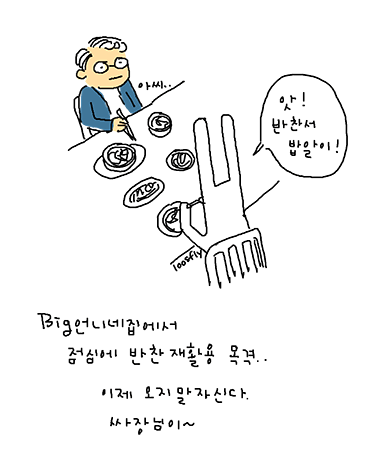 아씨..
앗!
반찬서
밥알이!
loosfly
Big언니네집에서
점심에 반찬 재활용 목격..
이제 오지말자신다.
싸장님이~